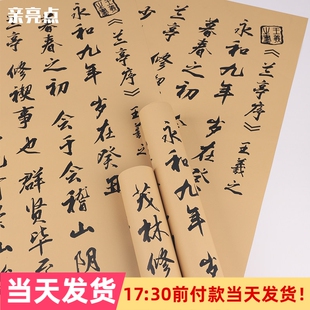 亲亮点
《兰亭序》王羲之
永和九年 岁在癸
暮春之初
《兰亭序》王羲之
永和九年 岁在癸丑
暮春之初 会于会稽山阴
兰亭 修禊事也 群贤毕至
永和九年 岁
茂林修
当天发货
17:30前付款当天发货!